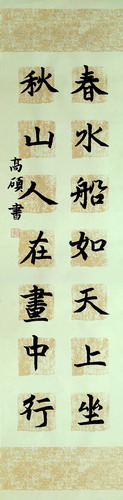 春水船如天上坐
秋山人在畫中行
高碩書